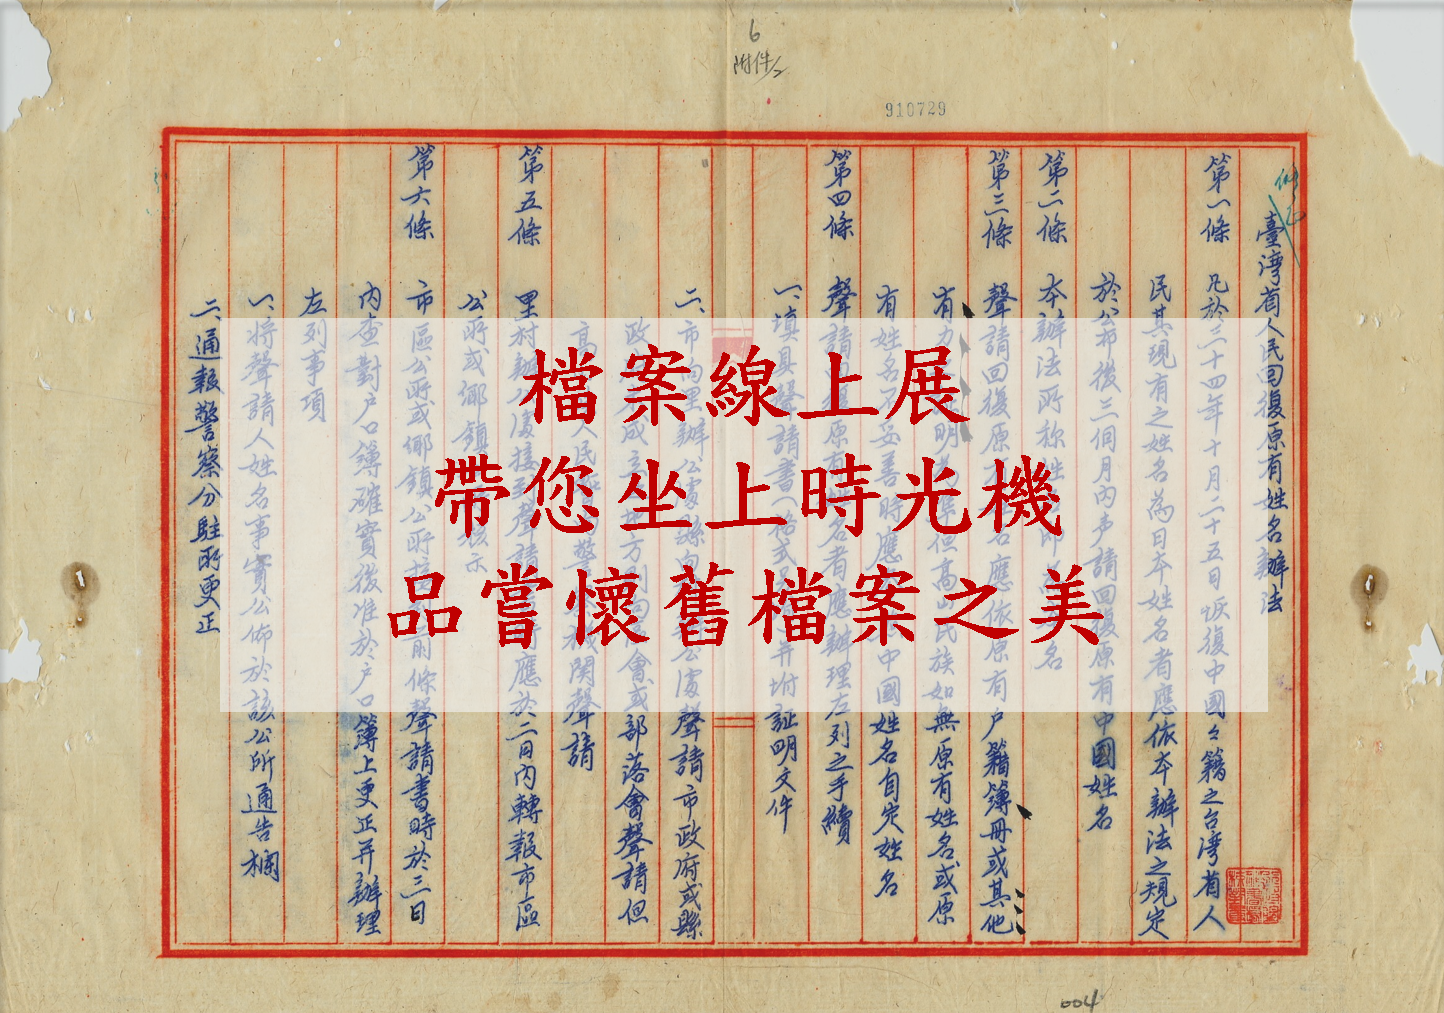 6
附件2
910729
修正
臺灣省人民回復原有姓名辦法
第一條 凡於三十四年十月二十五日恢復中國々籍之台灣省人
民其現有之姓名為日本姓名者應依本辦法之規定
於公布後三個月內声請回復原有中國姓名
第二條 本辦法所称姓名
第三條 聲請回復原有姓名應依原有戶籍簿冊或其他
有力
但高山民族如無原有姓名或原
有姓名不妥善時應
中國姓名自定姓名
第四條 聲請回復原有姓名者應辦理左列之手續
一、填具聲請書(格式
并附証明文件
二、市
里辦公處
聲請市政府或縣
政
會或部落會聲請但
高
人民
警
機関聲請
第五條 里村辦公處接到聲請
應於二日內轉報市區
公所或鄉鎮
示
第六條 市區公所或鄉鎮公所接
前條聲請書時於三日
內查對戶口簿確實後准於戶口簿上更正并辦理
左列事項
一、將聲請人姓名事實公佈於該公所通告欄
二、通報警察分駐所更正
檔案線上展
帶您坐上時光機
品嘗懷舊檔案之美
004